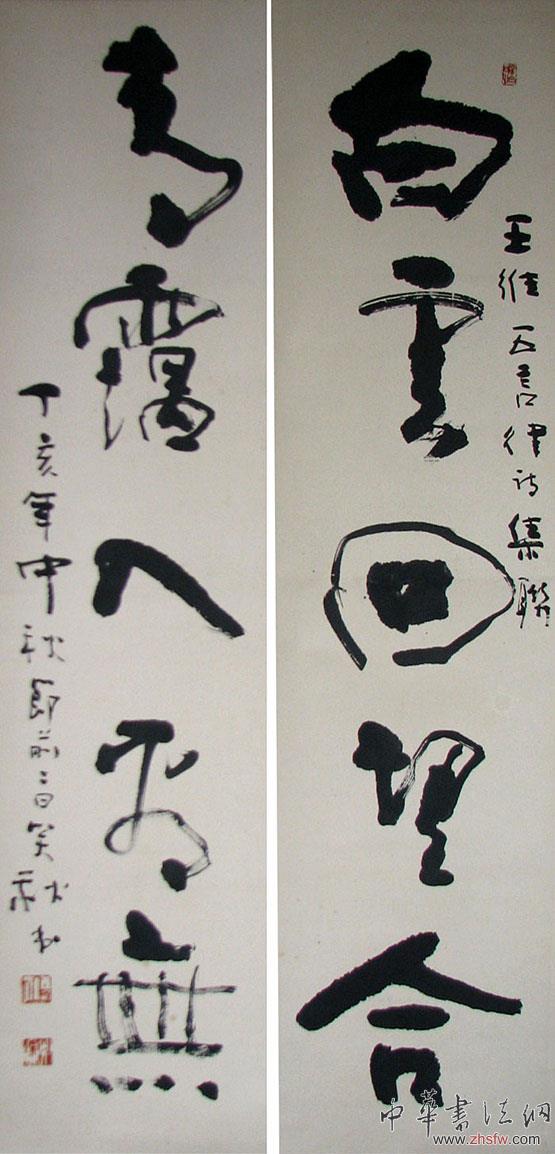 白雲回望合
王維五言律詩集聯
青靄入看無
丁亥年中秋節前二日笑秋書
中華書法網
www.zhsfw.com